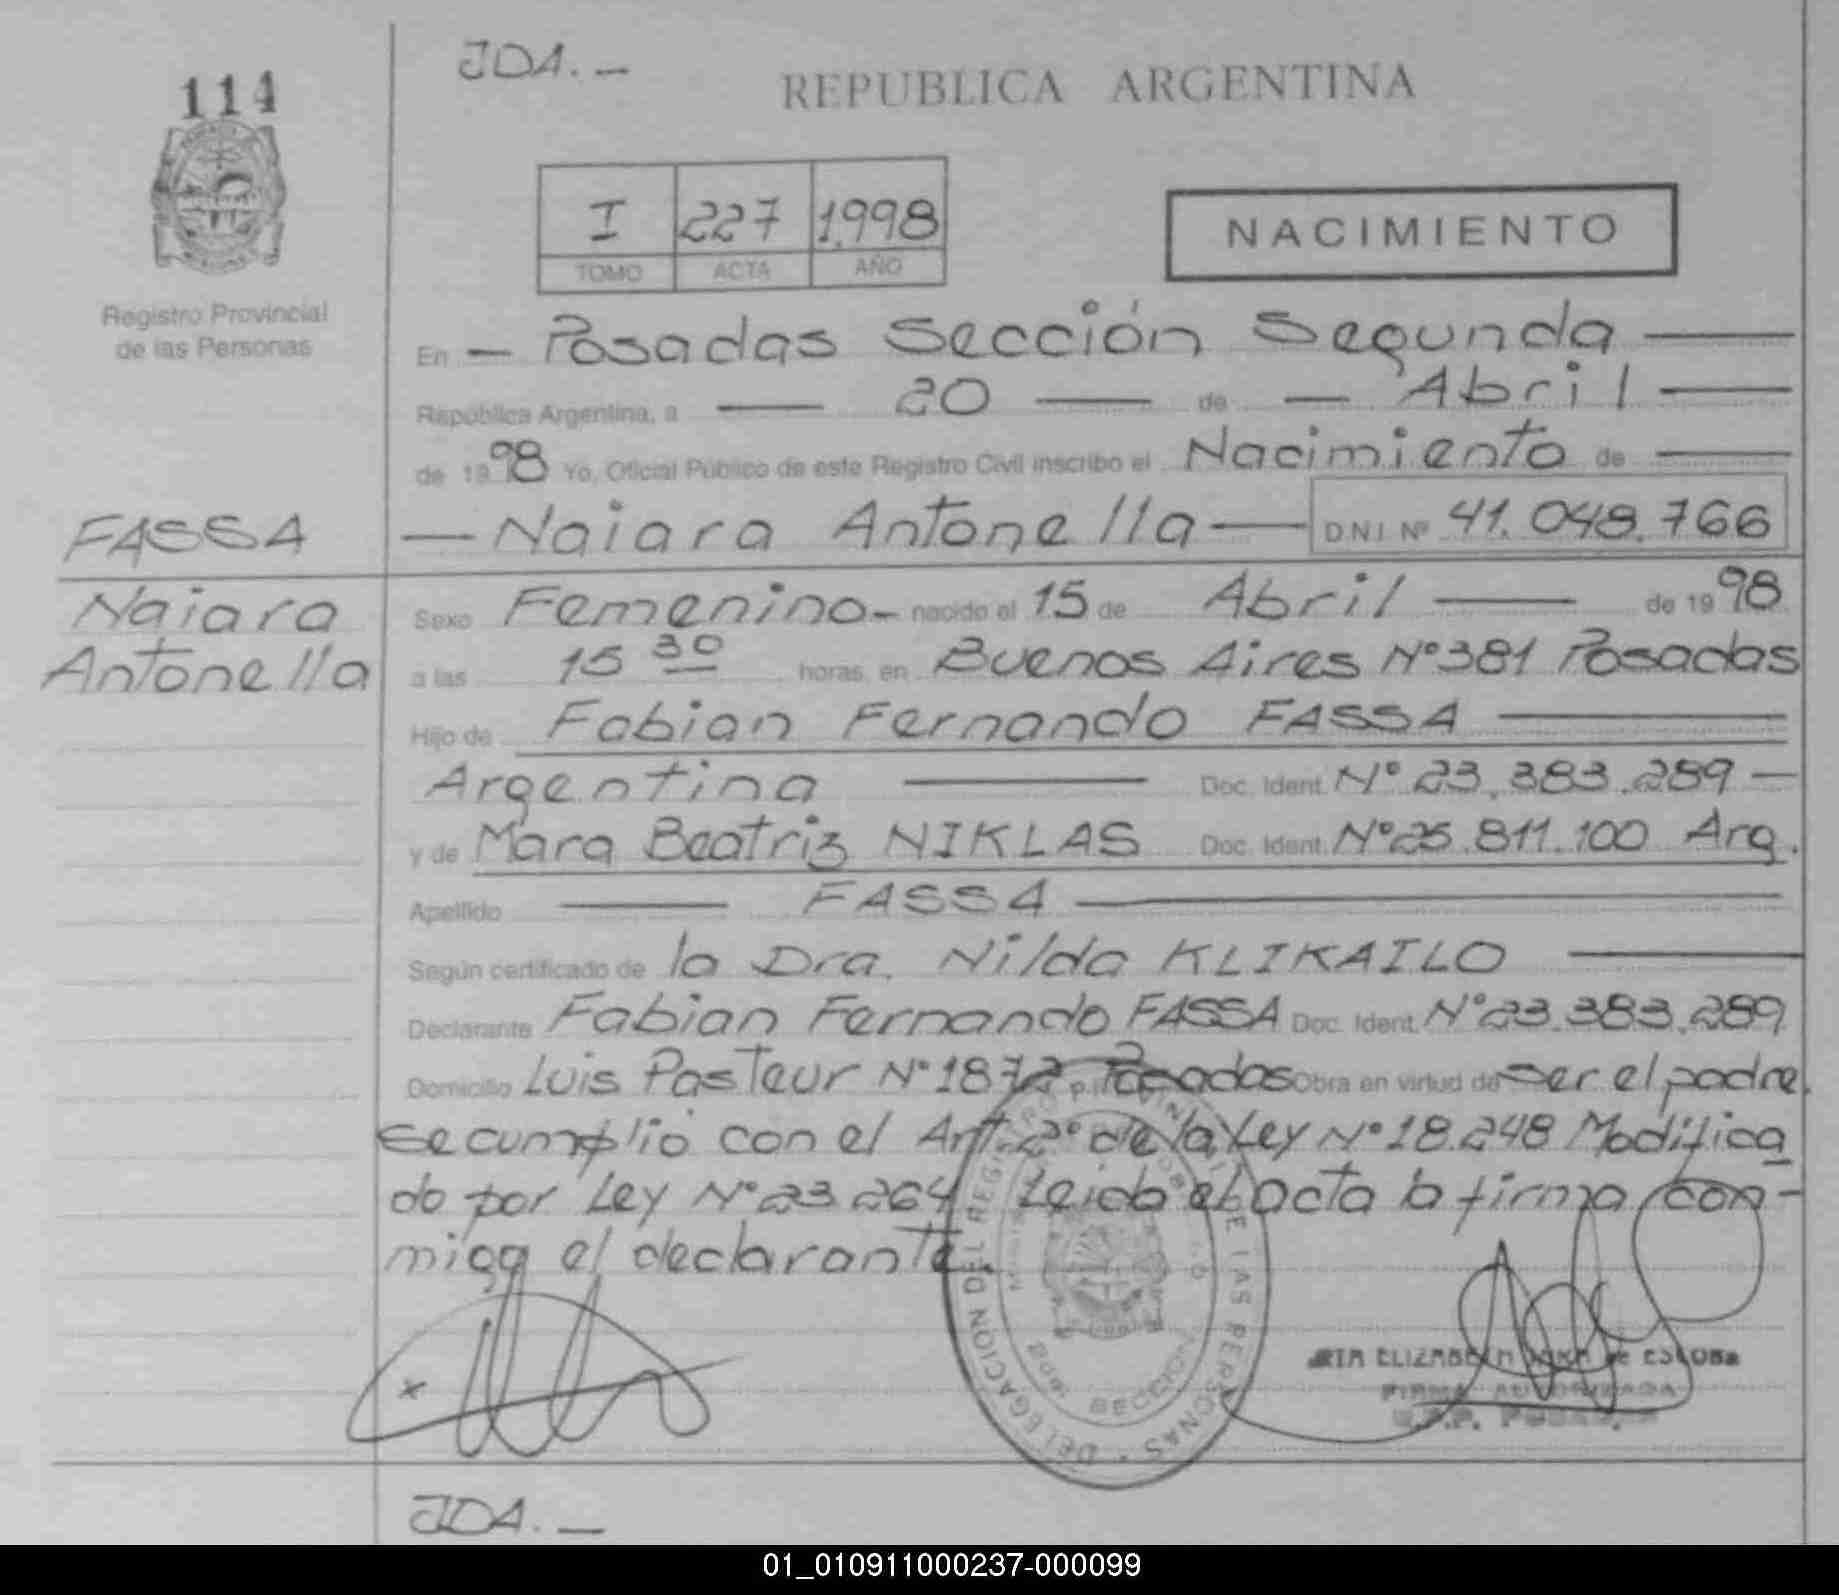 JDA.—
114
REPUBLICA ARGENTINA
I 227 1.998
TOMO ACTA AÑO
NACIMIENTO
Registro Provincial
de las Personas
En — Posadas Sección Segunda —
República Argentina, a — 20 — de — Abril —
de 1998 Yo, Oficial Público de este Registro Civil inscribo el Nacimiento de —
FASSA — Naiara Antonella — DNI Nº 41.048.766
Naiara
Antonella
Sexo Femenino - nacido el 15 de Abril — de 1998
a las 15 30 horas, en Buenos Aires Nº 381 Posadas
Hijo de Fabian Fernando FASSA —
Argentina — Doc. Ident. Nº 23.383.289 —
y de Mara Beatriz NIKLAS Doc. Ident. Nº 25.811.100 Arg.
Apellido — FASSA —
Según certificado de la Dra. Nilda KLIKAILO —
Declarante Fabian Fernando FASSA Doc. Ident. Nº 23.383.289
Domicilio Luis Pasteur Nº 1872 Posadas Obra en virtud de ser el padre.
se cumplió con el Art. 2º de la Ley Nº 18.248 Modifica
do por Ley Nº 23.264 Leída el acta la firma con-
migo el declarante.
DELEGACION DEL REGISTRO PROVINCIAL DE LAS PERSONAS
2da. SECCION
ELIZABETH de ESCOBAR
FIRMA AUTORIZADA
JDA.—
01_010911000237-000099